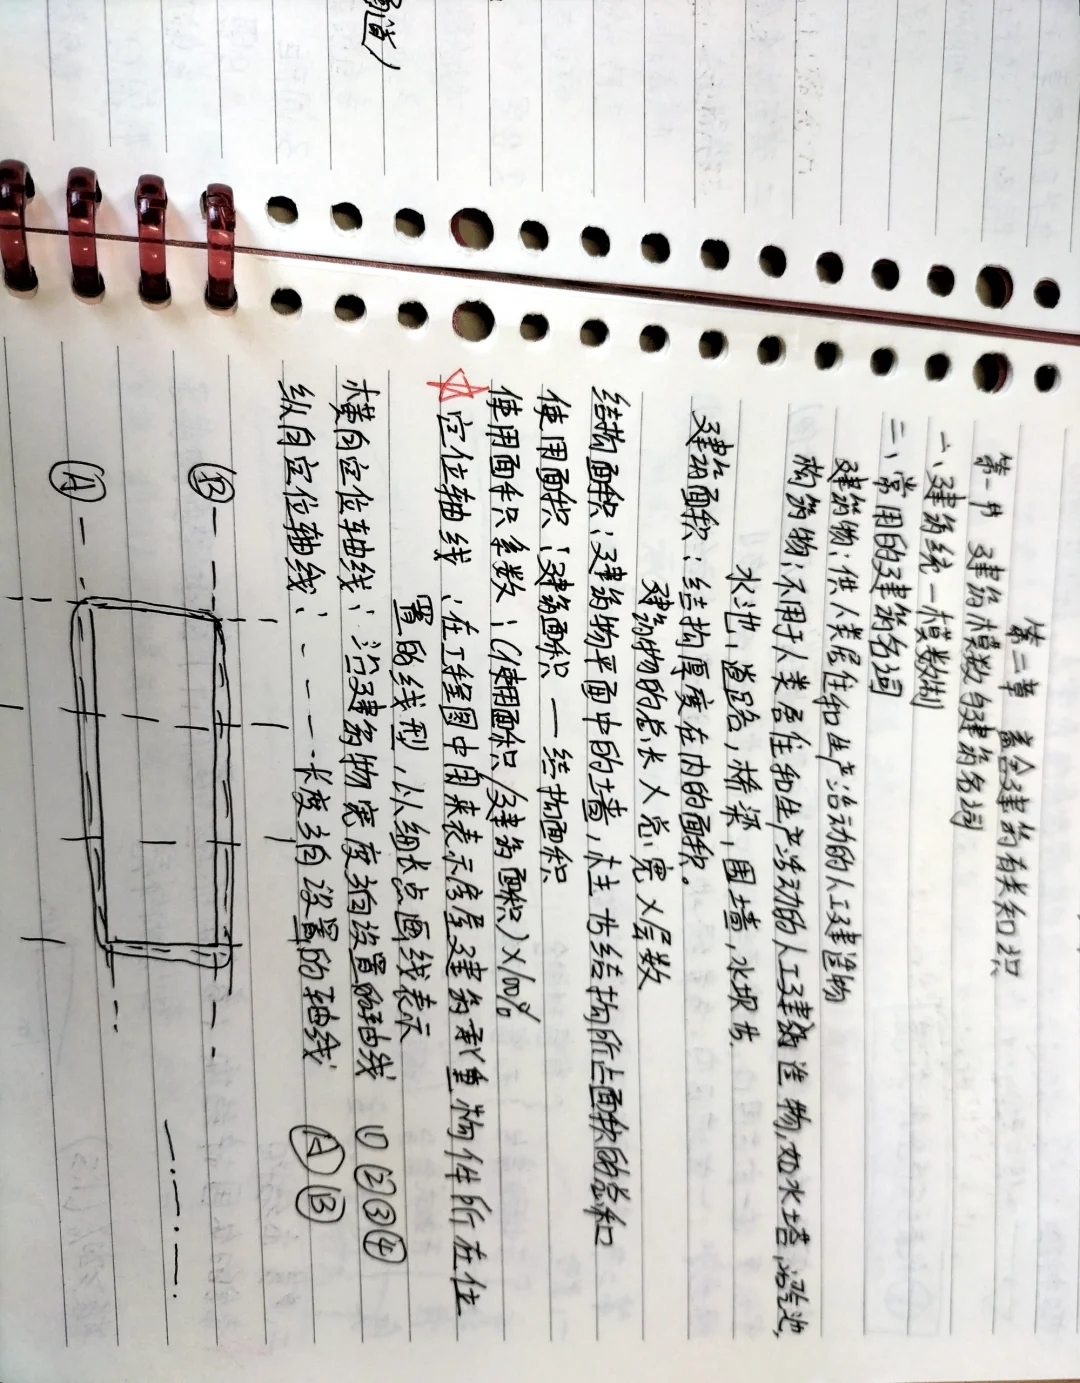 第二章 畜舍建筑有关知识
第一节 建筑模数与建筑名词
一、建筑统一模数制
二、常用的建筑名词
建筑物：供人类居住和生产活动的人工建造物
构筑物：不用于人类居住和生产活动的人工建筑造物，如水塔，沼气池，
水池，道路，桥梁，围墙，水坝等.
建筑面积：结构厚度在内的面积。
建筑物的总长×总宽×层数
结构面积：建筑物平面中的墙，柱等结构所占面积的总和
使用面积：建筑面积 — 结构面积
使用面积系数：（使用面积/建筑面积）×100%
☆ 定位轴线：在工程图中用来表示房屋建筑承重构件所在位
置的线型，以细长点画线表示
横向定位轴线：沿建筑物宽度方向设置的轴线 ① ② ③ ④
纵向定位轴线：- - - 长度方向设置的轴线 Ⓐ Ⓑ
Ⓑ
Ⓐ
道）